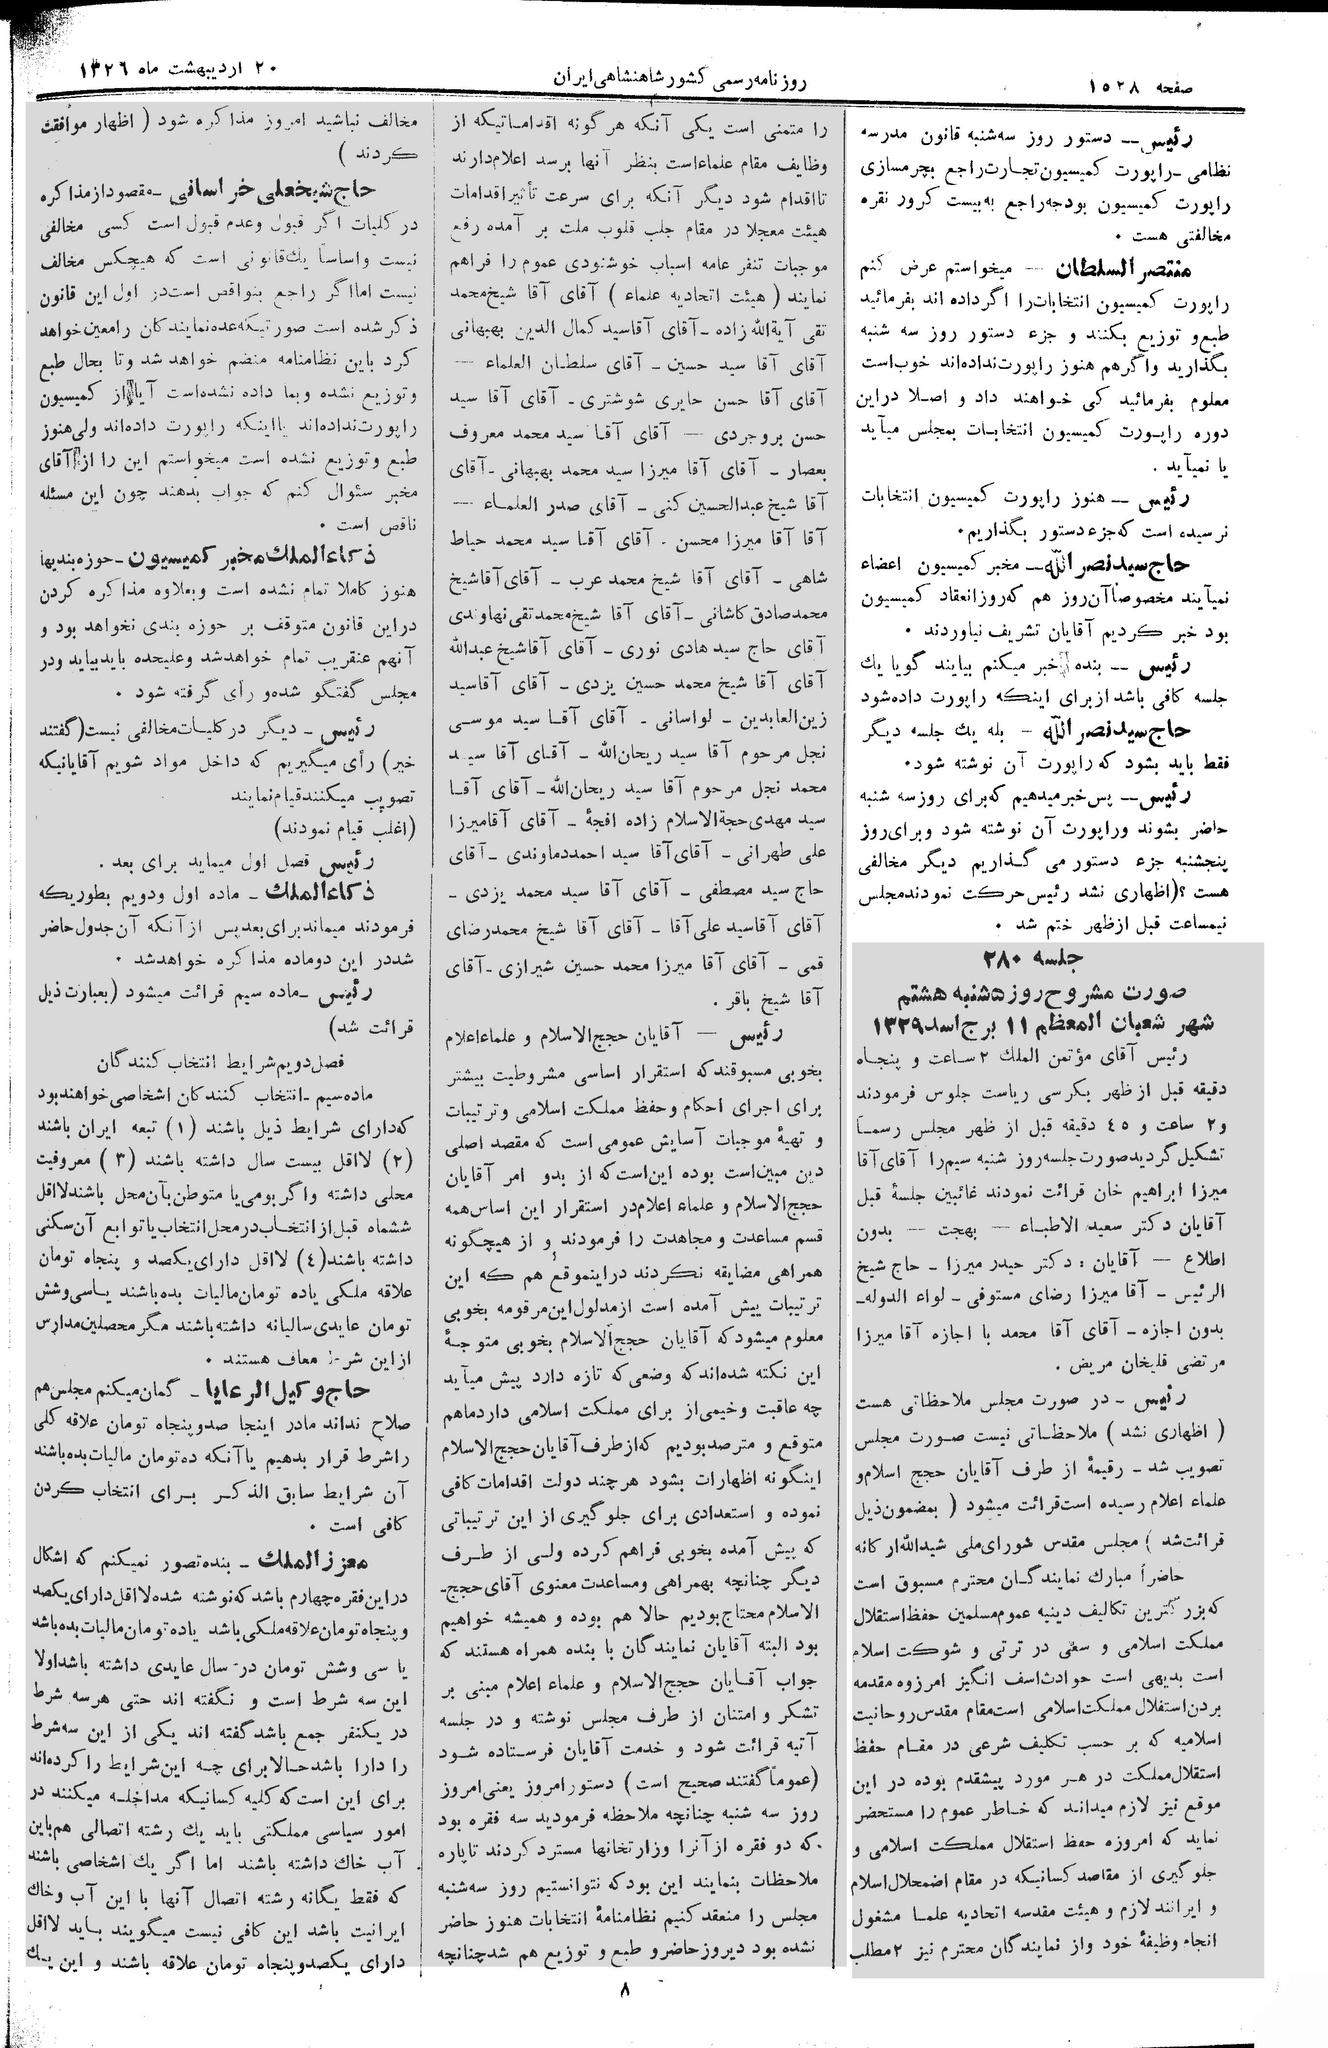 صفحه ۱۵۲۸
روزنامه رسمی کشور شاهنشاهی ایران
۲۰ اردیبهشت ماه ۱۳۲۶
رئیس ــ دستور روز سه‌شنبه قانون مدرسه
نظامی ـ راپورت کمیسیون تجارت راجع بچرمسازی
راپورت کمیسیون بودجه راجع به بیست کرور نقره
مخالفتی هست .
منتصر السلطان ــ میخواستم عرض کنم
راپورت کمیسیون انتخابات را اگر داده اند بفرمائید
طبع و توزیع بکنند و جزء دستور روز سه شنبه
بگذارید و اگر هم هنوز راپورت نداده‌اند خوب است
معلوم بفرمائید کی خواهند داد و اصلا در این
دوره راپورت کمیسیون انتخابات بمجلس میآید
یا نمیآید .
رئیس ــ هنوز راپورت کمیسیون انتخابات
نرسیده است که جزء دستور بگذاریم .
حاج سید نصر الله ــ مخبر کمیسیون اعضاء
نمیآیند مخصوصاً آن روز هم که روز انعقاد کمیسیون
بود خبر کردیم آقایان تشریف نیاوردند .
رئیس ــ بنده خبر میکنم بیایند گویا یك
جلسه کافی باشد از برای اینکه راپورت داده شود
حاج سید نصر الله ــ بله یك جلسه دیگر
فقط باید بشود که راپورت آن نوشته شود .
رئیس ــ پس خبر میدهیم که برای روز سه شنبه
حاضر بشوند و راپورت آن نوشته شود و برای روز
پنجشنبه جزء دستور می گذاریم دیگر مخالفی
هست ؟ (اظهاری نشد رئیس حرکت نمودند مجلس
نیمساعت قبل از ظهر ختم شد .
جلسه ۲۸۰
صورت مشروح روز ۵شنبه هشتم
شهر شعبان المعظم ۱۱ برج اسد ۱۳۲۹
رئیس آقای مؤتمن الملك ۲ ساعت و پنجاه
دقیقه قبل از ظهر بکرسی ریاست جلوس فرمودند
و ۲ ساعت و ۴۵ دقیقه قبل از ظهر مجلس رسماً
تشکیل گردید صورت جلسه روز شنبه سیم را آقای آقا
میرزا ابراهیم خان قرائت نمودند غائبین جلسهٔ قبل
آقایان دکتر سعید الاطباء ــ بهجت ــ بدون
اطلاع ــ آقایان : دکتر حیدر میرزا ـ حاج شیخ
الرئیس ـ آقا میرزا رضای مستوفی ـ لواء الدوله ـ
بدون اجازه ـ آقای آقا محمد با اجازه آقا میرزا
مرتضی قلیخان مریض .
رئیس ـ در صورت مجلس ملاحظاتی هست
( اظهاری نشد ) ملاحظاتی نیست صورت مجلس
تصویب شد ـ رقیمهٔ از طرف آقایان حجج اسلام و
علماء اعلام رسیده است قرائت میشود ( بمضمون ذیل
قرائت شد ) مجلس مقدس شورای ملی شید الله ارکانه
حاضراً مبارك نمایندگان محترم مسبوق است
که بزرگترین تکالیف دینیه عموم مسلمین حفظ استقلال
مملکت اسلامی و سعی در ترقی و شوکت اسلام
است بدیهی است حوادث اسف انگیز امروزه مقدمه
بردن استقلال مملکت اسلامی است مقام مقدس روحانیت
اسلامیه که بر حسب تکلیف شرعی در مقام حفظ
استقلال مملکت در هر مورد پیشقدم بوده در این
موقع نیز لازم میداند که خاطر عموم را مستحضر
نماید که امروزه حفظ استقلال مملکت اسلامی و
جلوگیری از مقاصد کسانیکه در مقام اضمحلال اسلام
و ایرانند لازم و هیئت مقدسه اتحادیه علما مشغول
انجام وظیفهٔ خود و از نمایندگان محترم نیز ۲ مطلب
را متمنی است یکی آنکه هر گونه اقداماتیکه از
وظایف مقام علماء است بنظر آنها برسد اعلام دارند
تا اقدام شود دیگر آنکه برای سرعت تأثیر اقدامات
هیئت معجلا در مقام جلب قلوب ملت بر آمده رفع
موجبات تنفر عامه اسباب خوشنودی عموم را فراهم
نمایند ( هیئت اتحادیه علماء ) آقای آقا شیخ محمد
تقی آیة الله زاده ـ آقای آقا سید کمال الدین بهبهانی
آقای آقا سید حسین ـ آقای سلطان العلماء ــ
آقای آقا حسن حایری شوشتری ـ آقای آقا سید
حسن بروجردی ــ آقای آقا سید محمد معروف
بعصار ـ آقای آقا میرزا سید محمد بهبهانی ـ آقای
آقا شیخ عبدالحسین کنی ـ آقای صدر العلماء ــ
آقا آقا میرزا محسن . آقای آقا سید محمد حیاط
شاهی ـ آقای آقا شیخ محمد عرب ـ آقای آقا شیخ
محمد صادق کاشانی ـ آقای آقا شیخ محمد تقی نهاوندی
آقای حاج سید هادی نوری ـ آقای آقا شیخ عبدالله
آقای آقا شیخ محمد حسین یزدی ـ آقای آقا سید
زین العابدین ـ لواسانی ـ آقای آقا سید موسی
نجل مرحوم آقا سید ریحان الله ـ آقای آقا سید
محمد نجل مرحوم آقا سید ریحان الله ـ آقای آقا
سید مهدی حجة الاسلام زاده افجهٔ ـ آقای آقا میرزا
علی طهرانی ـ آقای آقا سید احمد دماوندی ـ آقای
حاج سید مصطفی ـ آقای آقا سید محمد یزدی ـ
آقای آقا سید علی آقا ـ آقای آقا شیخ محمد رضای
قمی ـ آقای آقا میرزا محمد حسین شیرازی ـ آقای
آقا شیخ باقر .
رئیس ــ آقایان حجج الاسلام و علماء اعلام
بخوبی مسبوقند که استقرار اساسی مشروطیت بیشتر
برای اجرای احکام و حفظ مملکت اسلامی و ترتیبات
و تهیهٔ موجبات آسایش عمومی است که مقصد اصلی
دین مبین است بوده این است که از بدو امر آقایان
حجج الاسلام و علماء اعلام در استقرار این اساس همه
قسم مساعدت و مجاهدت را فرمودند و از هیچگونه
همراهی مضایقه نکردند در اینموقع هم که این
ترتیبات پیش آمده است از مدلول این مرقومه بخوبی
معلوم میشود که آقایان حجج الاسلام بخوبی متوجهٔ
این نکته شده‌اند که وضعی که تازه دارد پیش میآید
چه عاقبت وخیمی از برای مملکت اسلامی دارد ما هم
متوقع و مترصد بودیم که از طرف آقایان حجج الاسلام
اینگونه اظهارات بشود هر چند دولت اقدامات کافی
نموده و استعدادی برای جلوگیری از این ترتیباتی
که پیش آمده بخوبی فراهم کرده ولی از طرف
دیگر چنانچه بهمراهی و مساعدت معنوی آقای حجج ـ
الاسلام محتاج بودیم حالا هم بوده و همیشه خواهیم
بود البته آقایان نمایندگان با بنده همراه هستند که
جواب آقایان حجج الاسلام و علماء اعلام مبنی بر
تشکر و امتنان از طرف مجلس نوشته و در جلسه
آتیه قرائت شود و خدمت آقایان فرستاده شود
(عموماً گفتند صحیح است) دستور امروز یعنی امروز
روز سه شنبه چنانچه ملاحظه فرمودید سه فقره بود
که دو فقره از آنرا وزارتخانها مسترد کردند تا پاره
ملاحظات بنمایند این بود که نتوانستیم روز سه‌شنبه
مجلس را منعقد کنیم نظامنامهٔ انتخابات هنوز حاضر
نشده بود دیروز حاضر و طبع و توزیع هم شد چنانچه
مخالف نباشید امروز مذاکره شود ( اظهار موافقت
کردند )
حاج شیخعلی خراسانی ـ مقصود از مذاکره
در کلیات اگر قبول و عدم قبول است کسی مخالفی
نیست و اساساً یك قانونی است که هیچکس مخالف
نیست اما اگر راجع بنواقص است در اول این قانون
ذکر شده است صورتیکه عده نمایندگان را معین خواهد
کرد باین نظامنامه منضم خواهد شد و تا بحال طبع
و توزیع نشده و بما داده نشده است آیا از کمیسیون
راپورت نداده‌اند یا اینکه راپورت داده‌اند ولی هنوز
طبع و توزیع نشده است میخواستم این را از آقای
مخبر سئوال کنم که جواب بدهند چون این مسئله
ناقص است .
ذکاء الملك مخبر کمیسیون ـ حوزه بندیها
هنوز کاملا تمام نشده است و بعلاوه مذاکره کردن
در این قانون متوقف بر حوزه بندی نخواهد بود و
آنهم عنقریب تمام خواهد شد و علیحده باید بیاید و در
مجلس گفتگو شده و رأی گرفته شود .
رئیس ـ دیگر در کلیات مخالفی نیست (گفتند
خیر) رأی میگیریم که داخل مواد شویم آقایانیکه
تصویب میکنند قیام نمایند
(اغلب قیام نمودند)
رئیس فصل اول میماید برای بعد .
ذکاء الملك ـ ماده اول و دویم بطوریکه
فرمودند میماند برای بعد پس از آنکه آن جدول حاضر
شد در این دو ماده مذاکره خواهد شد .
رئیس ـ ماده سیم قرائت میشود (بعبارت ذیل
قرائت شد)
فصل دویم شرایط انتخاب کنندگان
ماده سیم ـ انتخاب کنندگان اشخاصی خواهند بود
که دارای شرایط ذیل باشند (۱) تبعه ایران باشند
(۲) لااقل بیست سال داشته باشند (۳) معروفیت
محلی داشته و اگر بومی یا متوطن بآن محل باشند لااقل
ششماه قبل از انتخاب در محل انتخاب یا توابع آن سکنی
داشته باشند (۴) لااقل دارای یکصد و پنجاه تومان
علاقه ملکی یا ده تومان مالیات بده باشند یا سی و شش
تومان عایدی سالیانه داشته باشند مگر محصلین مدارس
از این شرط معاف هستند .
حاج وکیل الرعایا ـ گمان میکنم مجلس هم
صلاح نداند ما در اینجا صد و پنجاه تومان علاقه کلی
را شرط قرار بدهیم یا آنکه ده تومان مالیات بده باشند
آن شرایط سابق الذکر برای انتخاب کردن
کافی است .
معزز الملك ـ بنده تصور نمیکنم که اشکال
در این فقره چهارم باشد که نوشته شده لااقل دارای یکصد
و پنجاه تومان علاقه ملکی باشد یا ده تومان مالیات بده باشد
یا سی و شش تومان در سال عایدی داشته باشد اولا
این سه شرط است و نگفته اند حتی هر سه شرط
در یکنفر جمع باشد گفته اند یکی از این سه شرط
را دارا باشد حالا برای چه این شرایط را کرده‌اند
برای این است که کلیه کسانیکه مداخله میکنند در
امور سیاسی مملکتی باید یك رشته اتصالی هم باین
آب خاك داشته باشند اما اگر یك اشخاصی باشند
که فقط یگانه رشته اتصال آنها با این آب و خاك
ایرانیت باشد این کافی نیست میگویند باید لااقل
دارای یکصد و پنجاه تومان علاقه باشند و این یك
۸